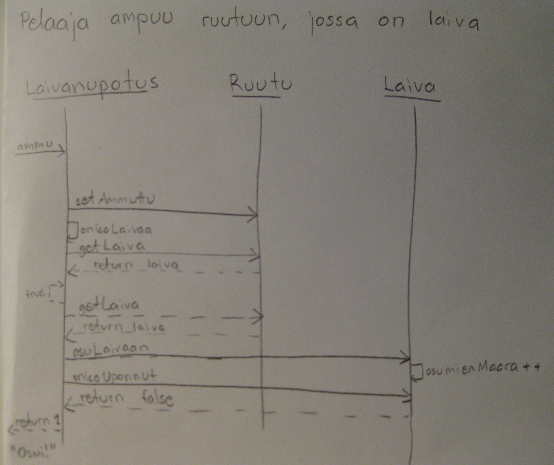 Pelaaja ampuu ruutuun, jossa on laiva
Laivanupotus Ruutu Laiva
ammu
setAmmuttu
onkoLaivaa
getLaiva
return laiva
true
getLaiva
return laiva
osuLaivaan
osumienMaara++
onkoUponnut
return false
return 1
"Osui!"